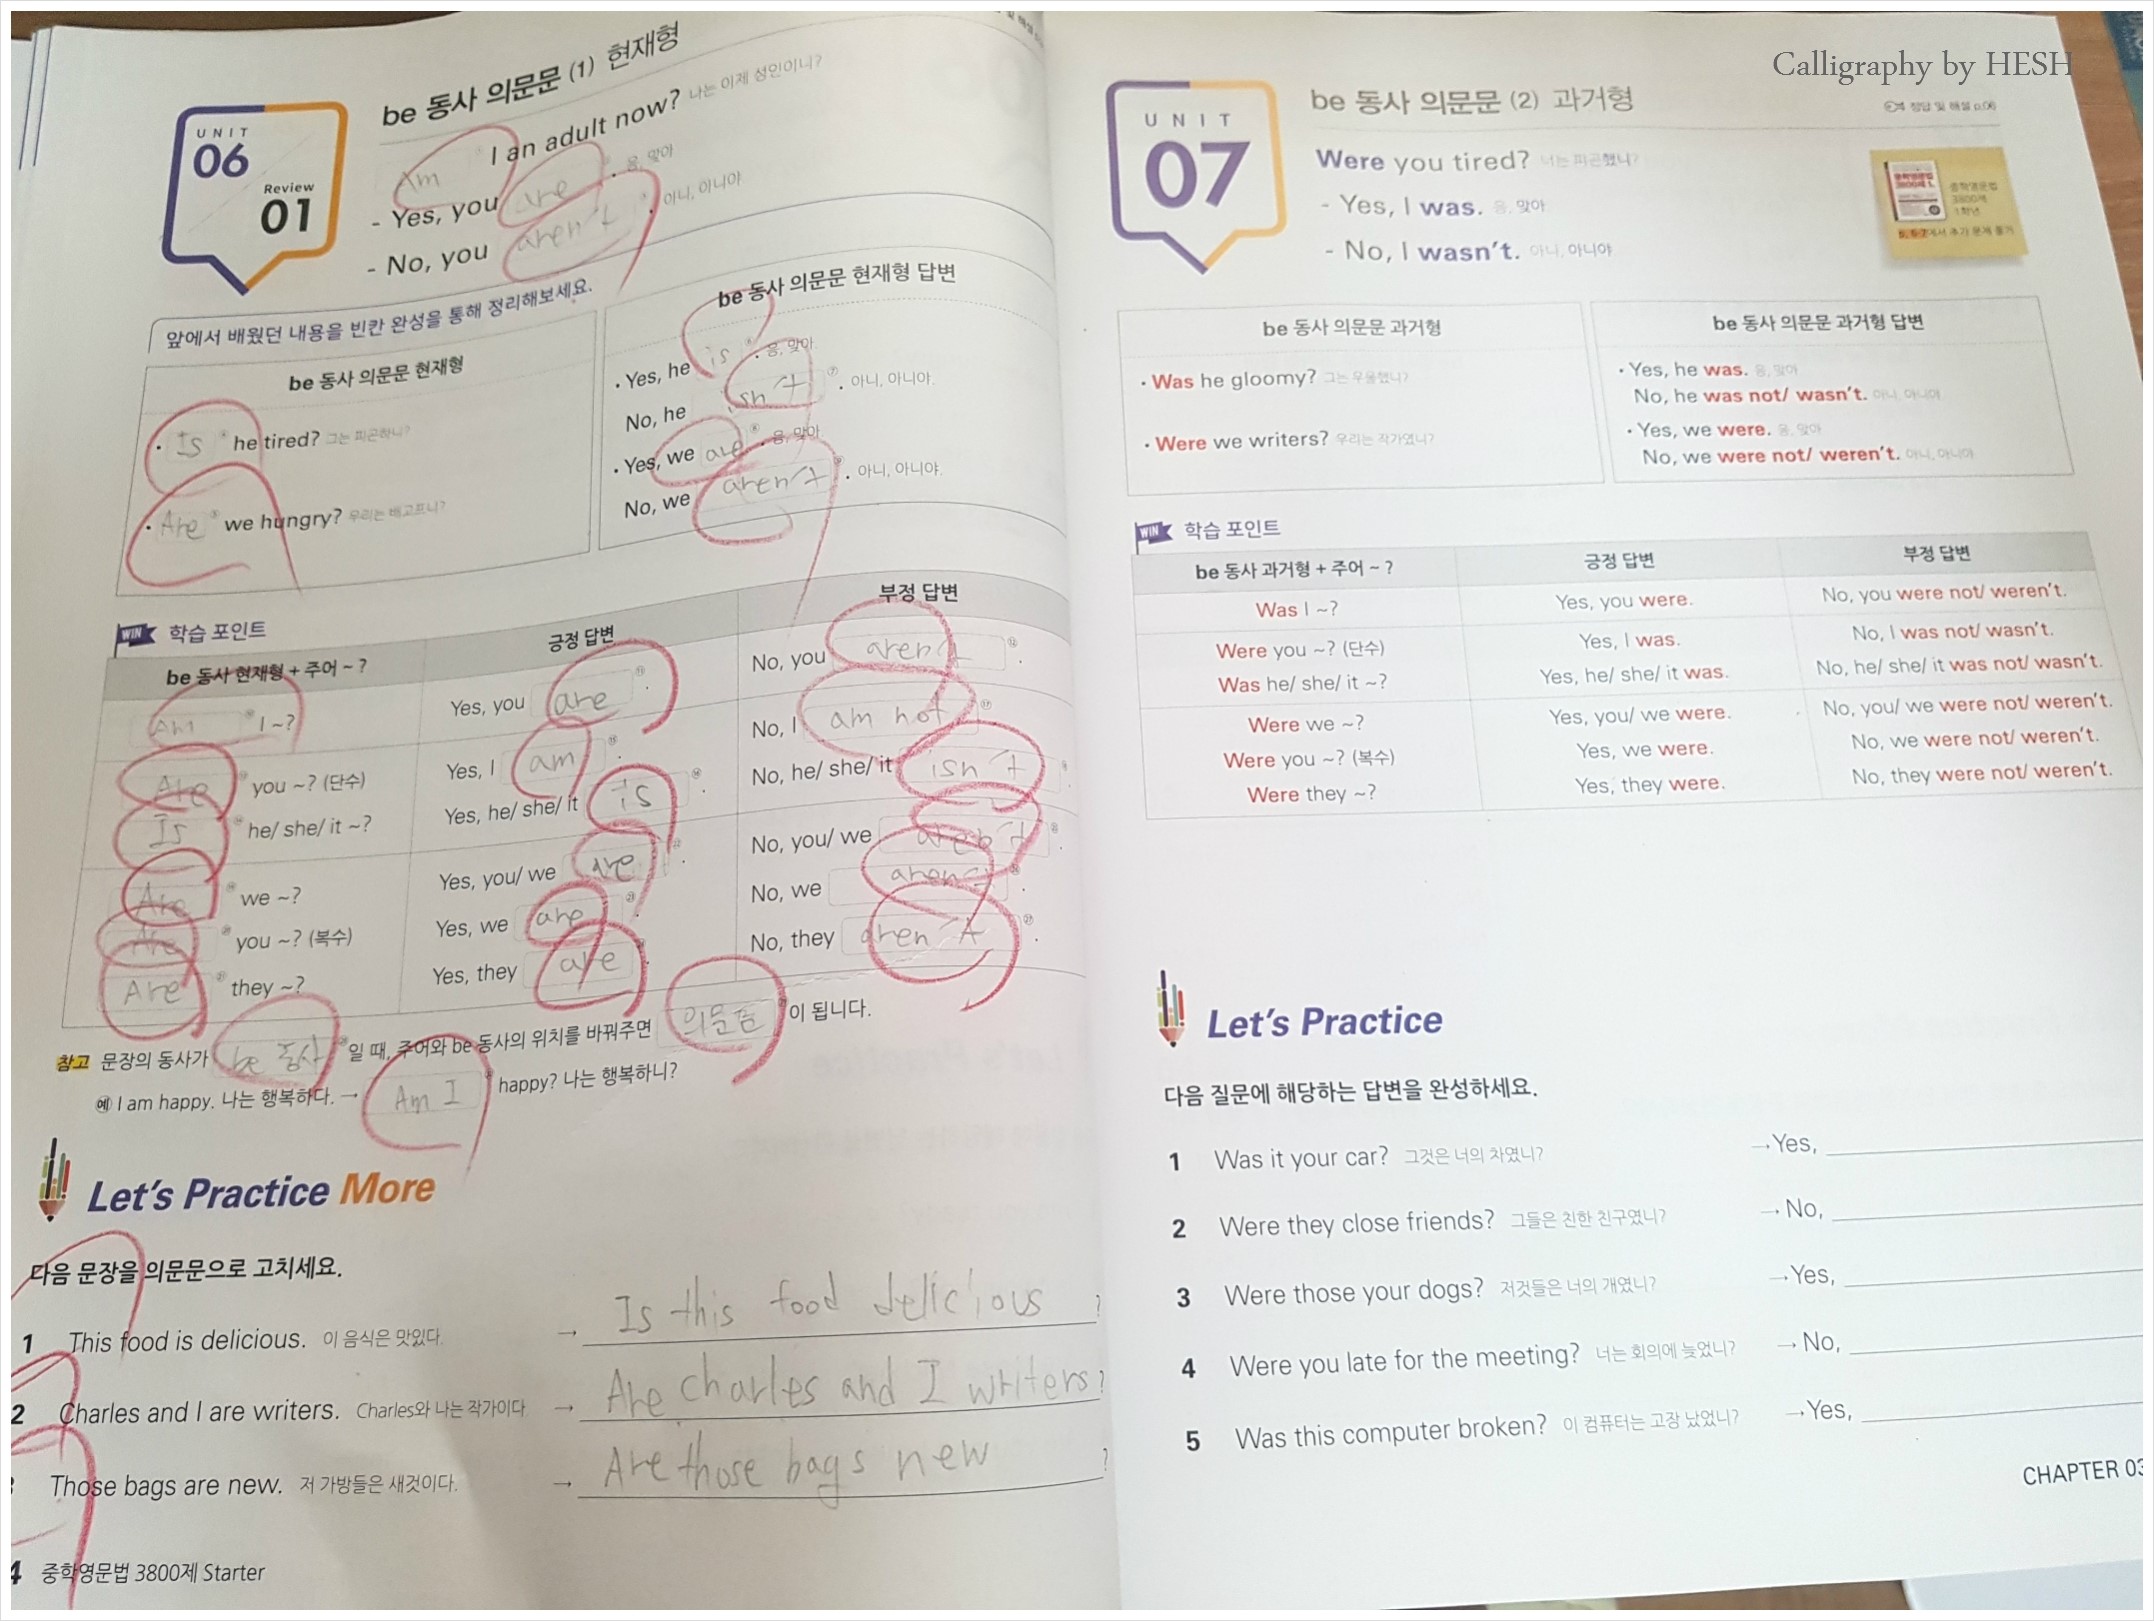 Calligraphy by HESH
UNIT
06
Review
01
be 동사 의문문 (1) 현재형
Am I an adult now? 나는 이제 성인이니?
- Yes, you are. 응, 맞아
- No, you aren't. 아니, 아니야
앞에서 배웠던 내용을 빈칸 완성을 통해 정리해보세요.
be 동사 의문문 현재형
• Is he tired? 그는 피곤하니?
• Are we hungry? 우리는 배고프니?
be 동사 의문문 현재형 답변
• Yes, he is. 응, 맞아
No, he isn't. 아니, 아니야.
• Yes, we are. 응, 맞아
No, we aren't. 아니, 아니야.
WIN 학습 포인트
be 동사 현재형 + 주어 ~ ? 긍정 답변 부정 답변
Am I ~? Yes, you are. No, you aren't.
Are you ~? (단수) Yes, I am. No, I am not.
Is he/ she/ it ~? Yes, he/ she/ it is. No, he/ she/ it isn't.
Are we ~? Yes, you/ we are. No, you/ we aren't.
Are you ~? (복수) Yes, we are. No, we aren't.
Are they ~? Yes, they are. No, they aren't.
참고 문장의 동사가 be 동사 일 때, 주어와 be 동사의 위치를 바꿔주면 의문문 이 됩니다.
예 I am happy. 나는 행복하다. → Am I happy? 나는 행복하니?
Let's Practice More
다음 문장을 의문문으로 고치세요.
1 This food is delicious. 이 음식은 맛있다. → Is this food delicious ?
2 Charles and I are writers. Charles와 나는 작가이다. → Are charles and I writers?
Those bags are new. 저 가방들은 새것이다. → Are those bags new ?
4 중학영문법 3800제 Starter
UNIT
07
be 동사 의문문 (2) 과거형
정답 및 해설 p.06
Were you tired? 너는 피곤했니?
- Yes, I was. 응, 맞아
- No, I wasn't. 아니, 아니야
중학영문법
3800제
1학년
p. 6-7에서 추가 문제 풀기
be 동사 의문문 과거형
• Was he gloomy? 그는 우울했니?
• Were we writers? 우리는 작가였니?
be 동사 의문문 과거형 답변
• Yes, he was. 응, 맞아
No, he was not/ wasn't. 아니, 아니야
• Yes, we were. 응, 맞아
No, we were not/ weren't. 아니, 아니야
WIN 학습 포인트
be 동사 과거형 + 주어 ~ ? 긍정 답변 부정 답변
Was I ~? Yes, you were. No, you were not/ weren't.
Were you ~? (단수) Yes, I was. No, I was not/ wasn't.
Was he/ she/ it ~? Yes, he/ she/ it was. No, he/ she/ it was not/ wasn't.
Were we ~? Yes, you/ we were. No, you/ we were not/ weren't.
Were you ~? (복수) Yes, we were. No, we were not/ weren't.
Were they ~? Yes, they were. No, they were not/ weren't.
Let's Practice
다음 질문에 해당하는 답변을 완성하세요.
1 Was it your car? 그것은 너의 차였니? → Yes,
2 Were they close friends? 그들은 친한 친구였니? → No,
3 Were those your dogs? 저것들은 너의 개였니? → Yes,
4 Were you late for the meeting? 너는 회의에 늦었니? → No,
5 Was this computer broken? 이 컴퓨터는 고장 났었니? → Yes,
CHAPTER 03